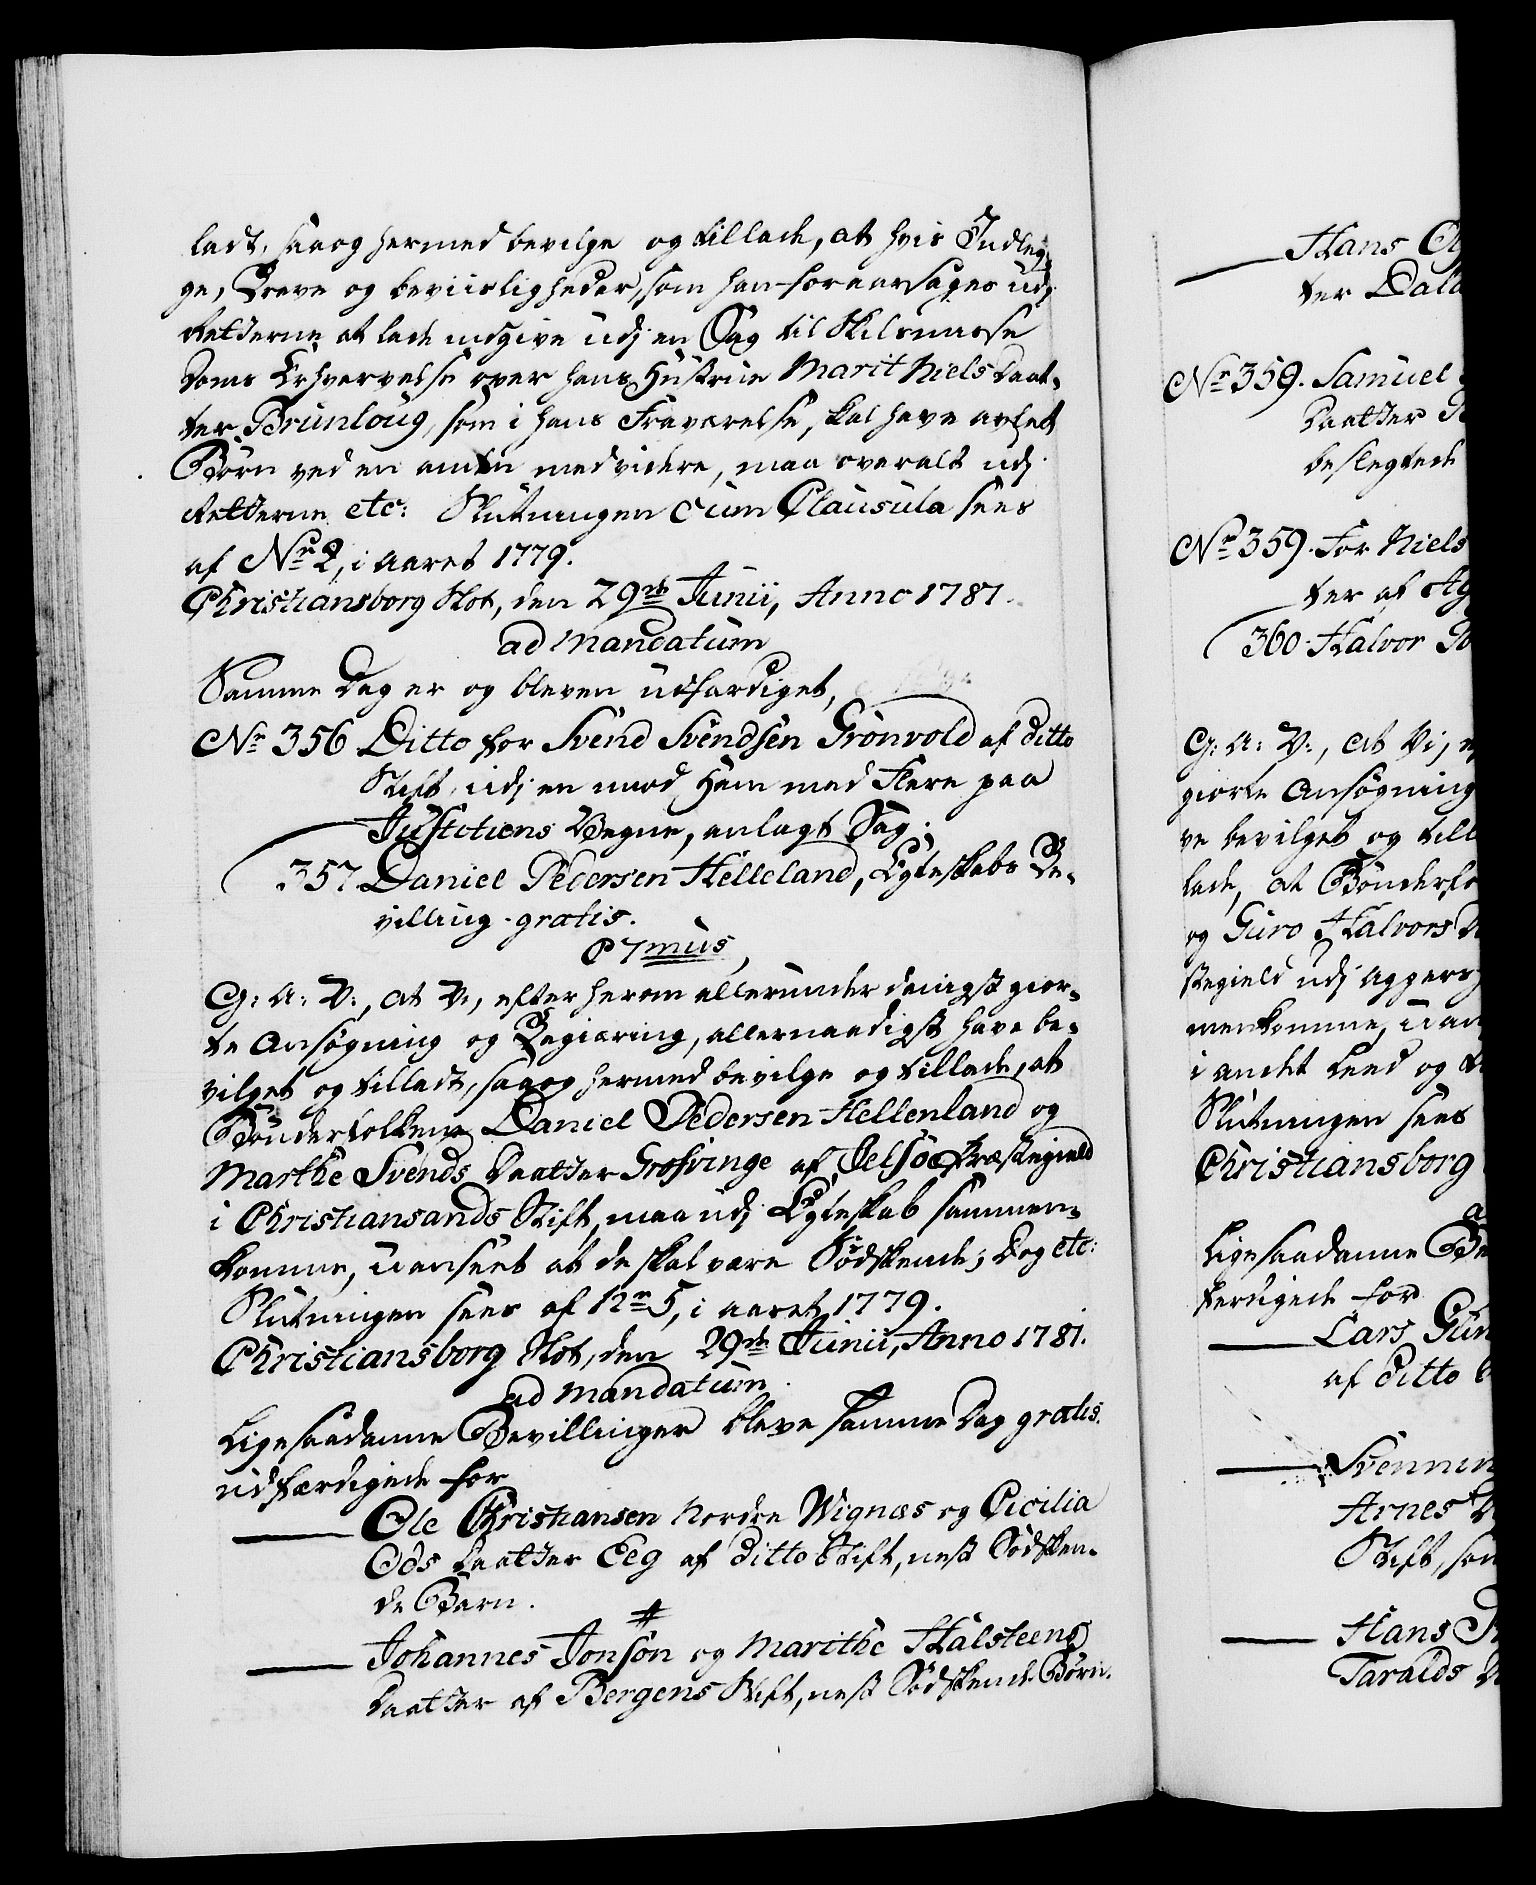 ladt, saaog hermed bevilge og tillade, at hvis Indleg-
ge, Breve og beviisligheder, som han foraarsages udj
Retterne at lade indgive udj en Sag til Skilsmisse
Doms Erhvervelse over hans Hustrue Marit Niels Daat-
ter Brunloug, som i hans Fraværelse, skal have avlet
Børn ved en anden med videre, maa overalt udj
Retterne etc: Slutningen cum Clausula sees
af No 2, i aaret 1779.
Christiansborg Slot, den 29de Junii, Anno 1781.
ad mandatum
Samme Dag er og bleven udfærdiget,
No 356 Ditto for Svend Svendsen Grønvold af ditto
Stift, udj en mod Ham med Flere paa
Justitiens Vegne, anlagt Sag.
357 Daniel Pedersen Helleland, Egteskabs Be-
villing gratis.
P 7mus
G: A: V:, at Vi, efter herom allerunderdanigst gior-
te Ansøgning og Begiæring, allernaadigst have be-
vilget og tilladt, saaog hermed bevilge og tillade, at
Bønderfolkene Daniel Pedersen Hellenland og
Marthe Svends Daatter Grosvinge af Jelsøe Præstegield
i Christiansands Stift, maa udj Egteskab sammen-
komme, uanseet at de skal være Sødskende; Dog etc:
Slutningen sees af No 5, i aaret 1779.
Christiansborg Slot, den 29de Junii, Anno 1781.
ad mandatum
Ligesaadanne Bevillinger bleve samme Dag gratis
udfærdigede for
Ole Christiansen Nordre Wignæs og Cicilia
Ods Daatter Eeg af ditto Stift, nest Sødsken-
de Børn.
Johannes Jonsøn og Marithe Halsteens
Daatter af Bergens Stift, nest Sødskende Børn.
Hans
ter
No 359. Samuel
Daatter
beslegtede
No 359. For Niels
ter af
360. Halvor
G: A: V:, at Vi,
giorte Ansøgning
ve bevilget og till
lade, at Bønderfo
og Guro Halvors
stegield udj Aggers
menkomme, uan
i andet Leed og
Slutningen sees
Christiansborg
Ligesaadanne
færdigede for
Lars
af ditto
Arnes
Stift, som
Hans
Taralds